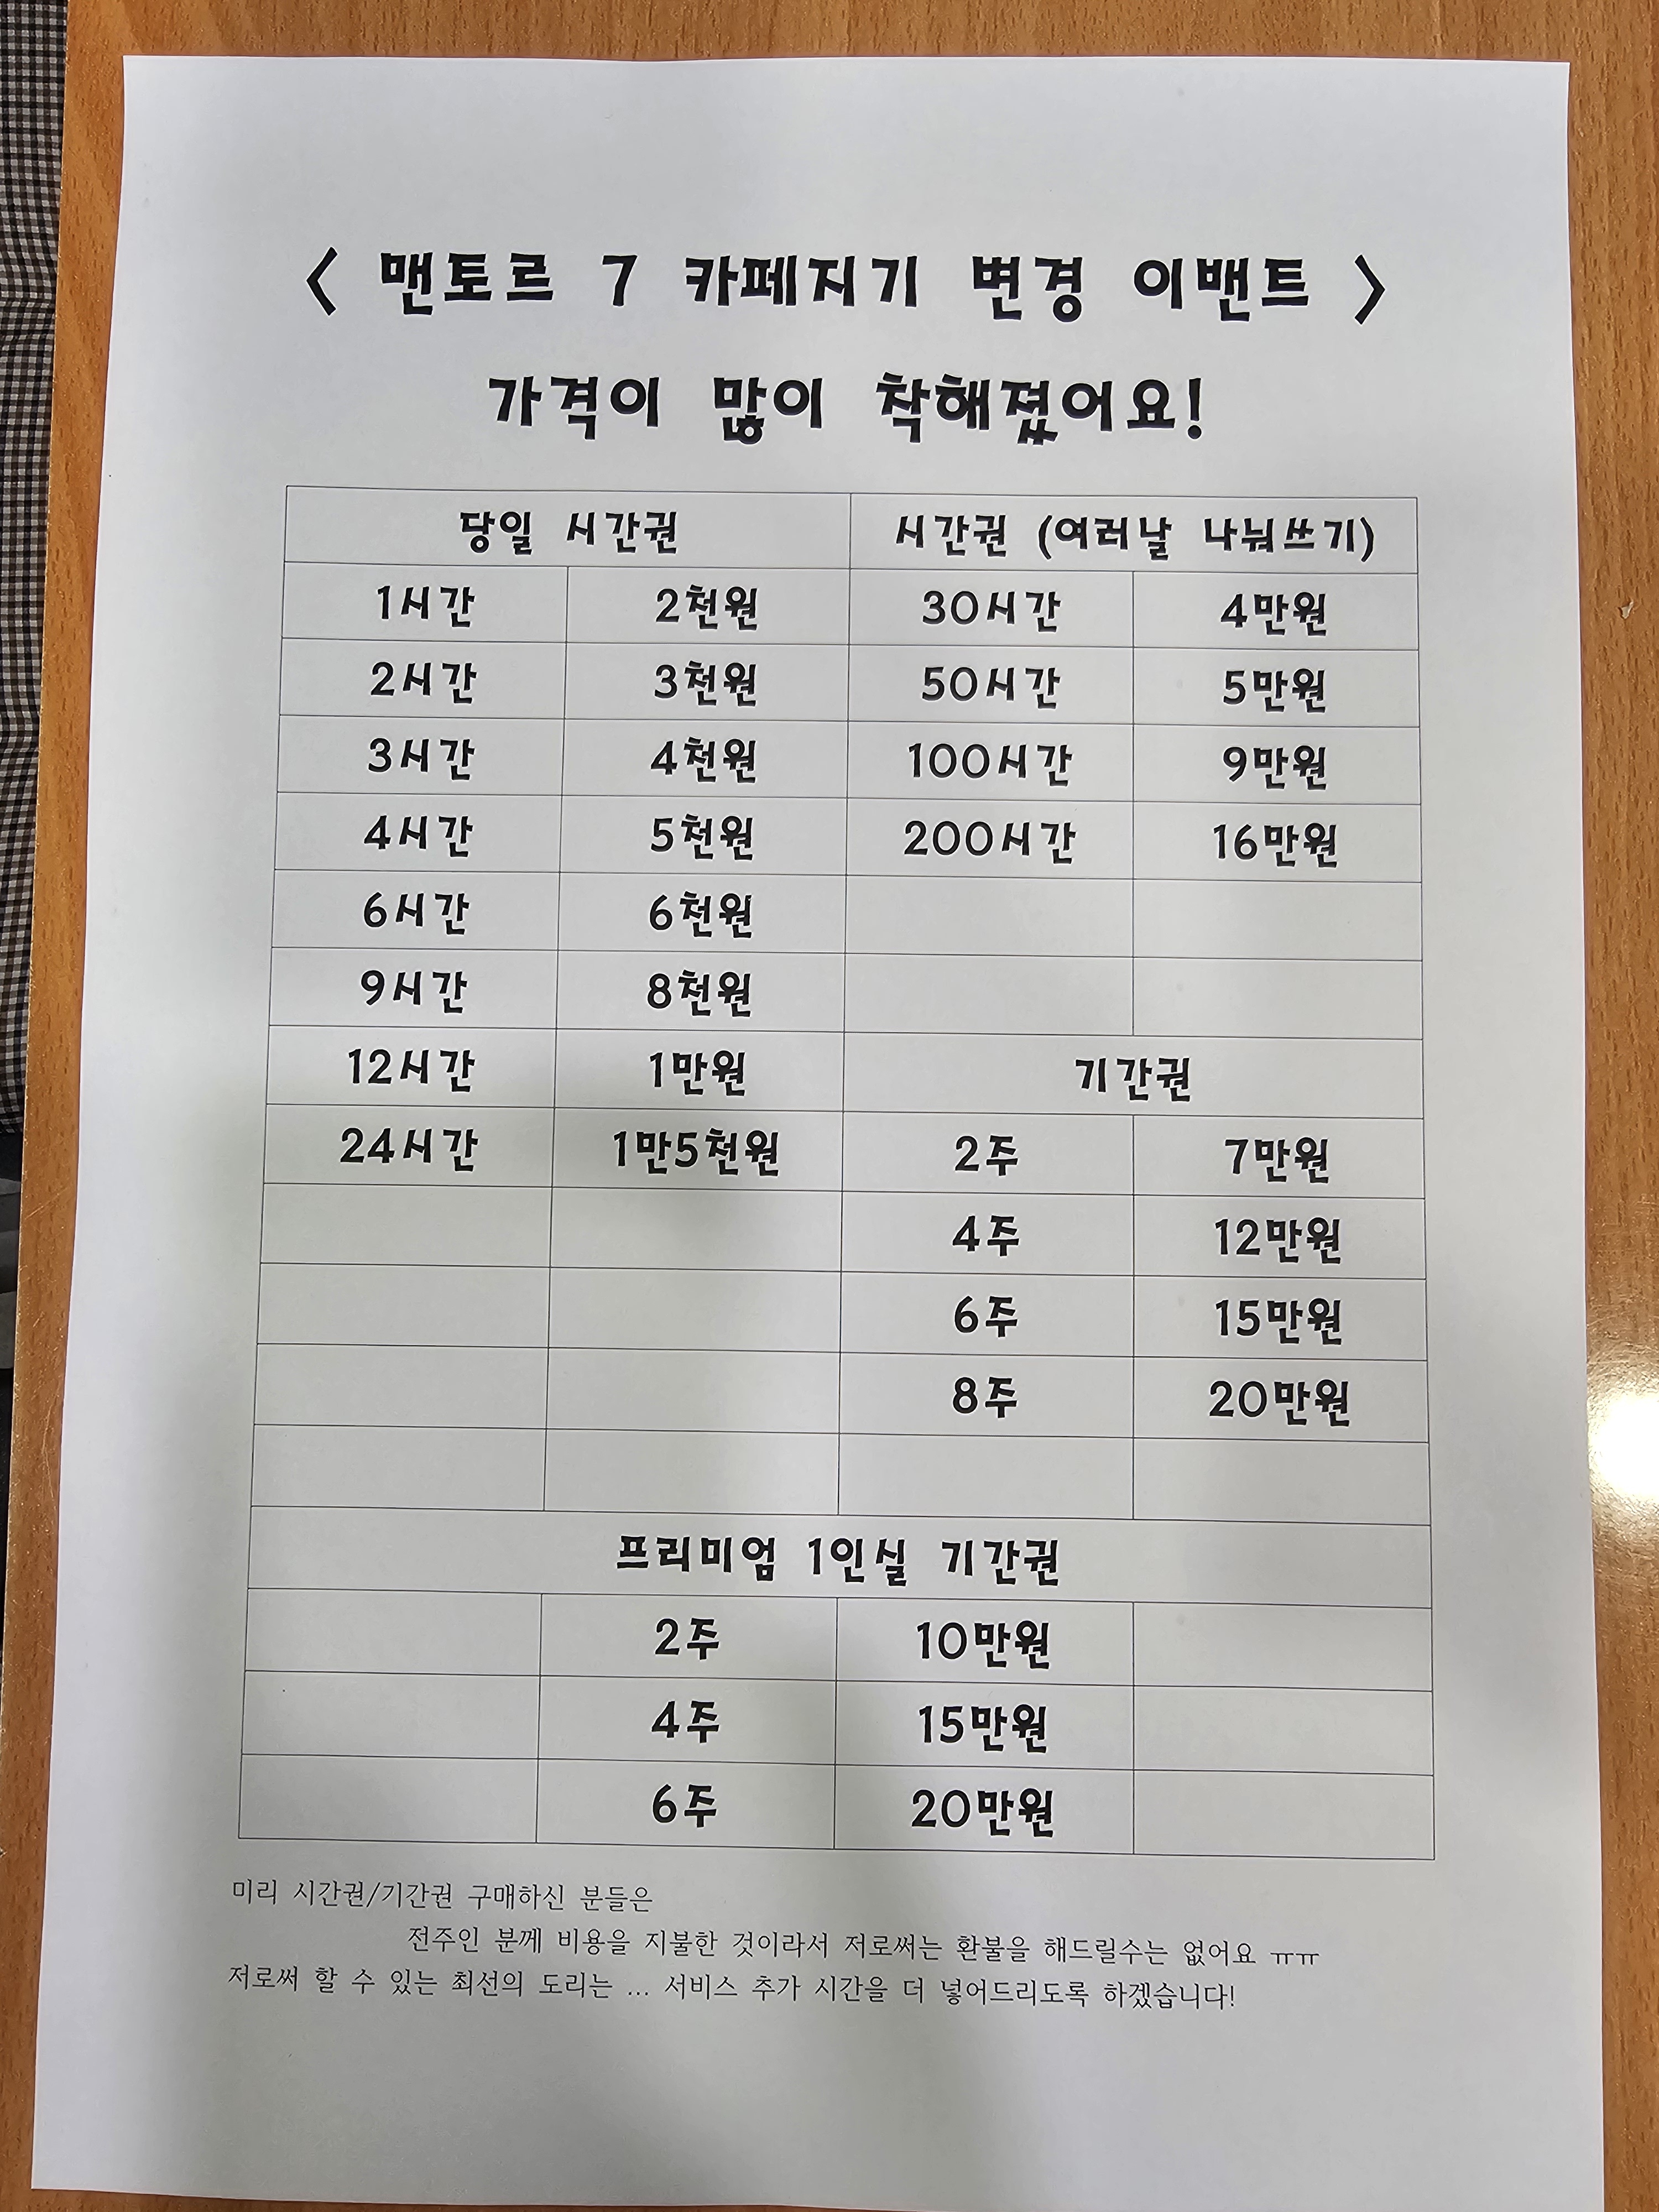 < 맨토르 7 카페지기 변경 이밴트 >
가격이 많이 착해졌어요!
당일 시간권 시간권 (여러날 나눠쓰기)
1시간 2천원 30시간 4만원
2시간 3천원 50시간 5만원
3시간 4천원 100시간 9만원
4시간 5천원 200시간 16만원
6시간 6천원
9시간 8천원
12시간 1만원 기간권
24시간 1만5천원 2주 7만원
4주 12만원
6주 15만원
8주 20만원
프리미엄 1인실 기간권
2주 10만원
4주 15만원
6주 20만원
미리 시간권/기간권 구매하신 분들은
전주인 분께 비용을 지불한 것이라서 저로써는 환불을 해드릴수는 없어요 ㅠㅠ
저로써 할 수 있는 최선의 도리는 ... 서비스 추가 시간을 더 넣어드리도록 하겠습니다!